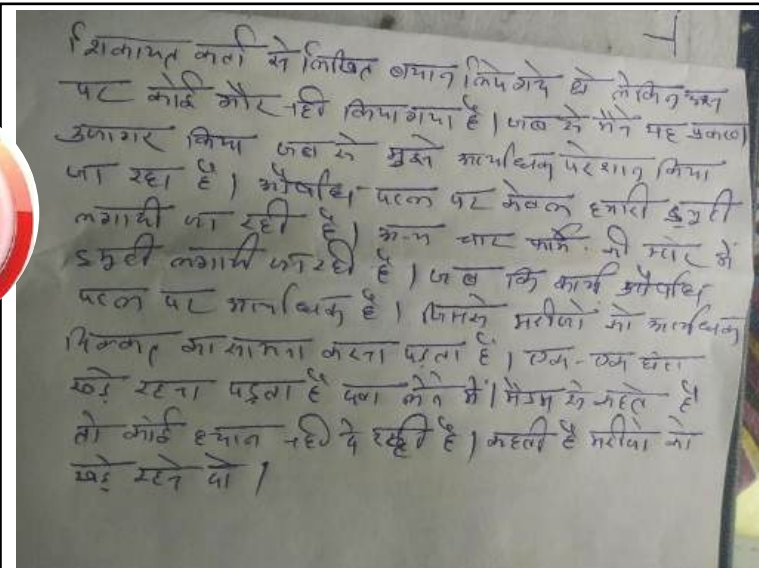 शिकायत कर्ता से लिखित बयान लिये गये थे लेकिन उस
पर कोई गौर नही किया गया है। जब से मैने यह प्रकरण
उजागर किया जब से मुझे अत्यधिक परेशान किया
जा रहा है। औषधि पटल पर केवल हमारी ड्यूटी
लगायी जा रही है। अन्य चार फार्मे. की स्टोर में
ड्यूटी लगायी जा रही है। जब कि कार्य औषधि
पटल पर अत्यधिक है। जिससे मरीजों को अत्यधिक
दिक्कत का सामना करना पड़ता है। एक-एक घंटा
खड़े रहना पड़ता है दवा लेने में। मैडम से कहते है
तो कोई ध्यान नही दे रही है। कहती है मरीजो को
खड़े रहने दो।